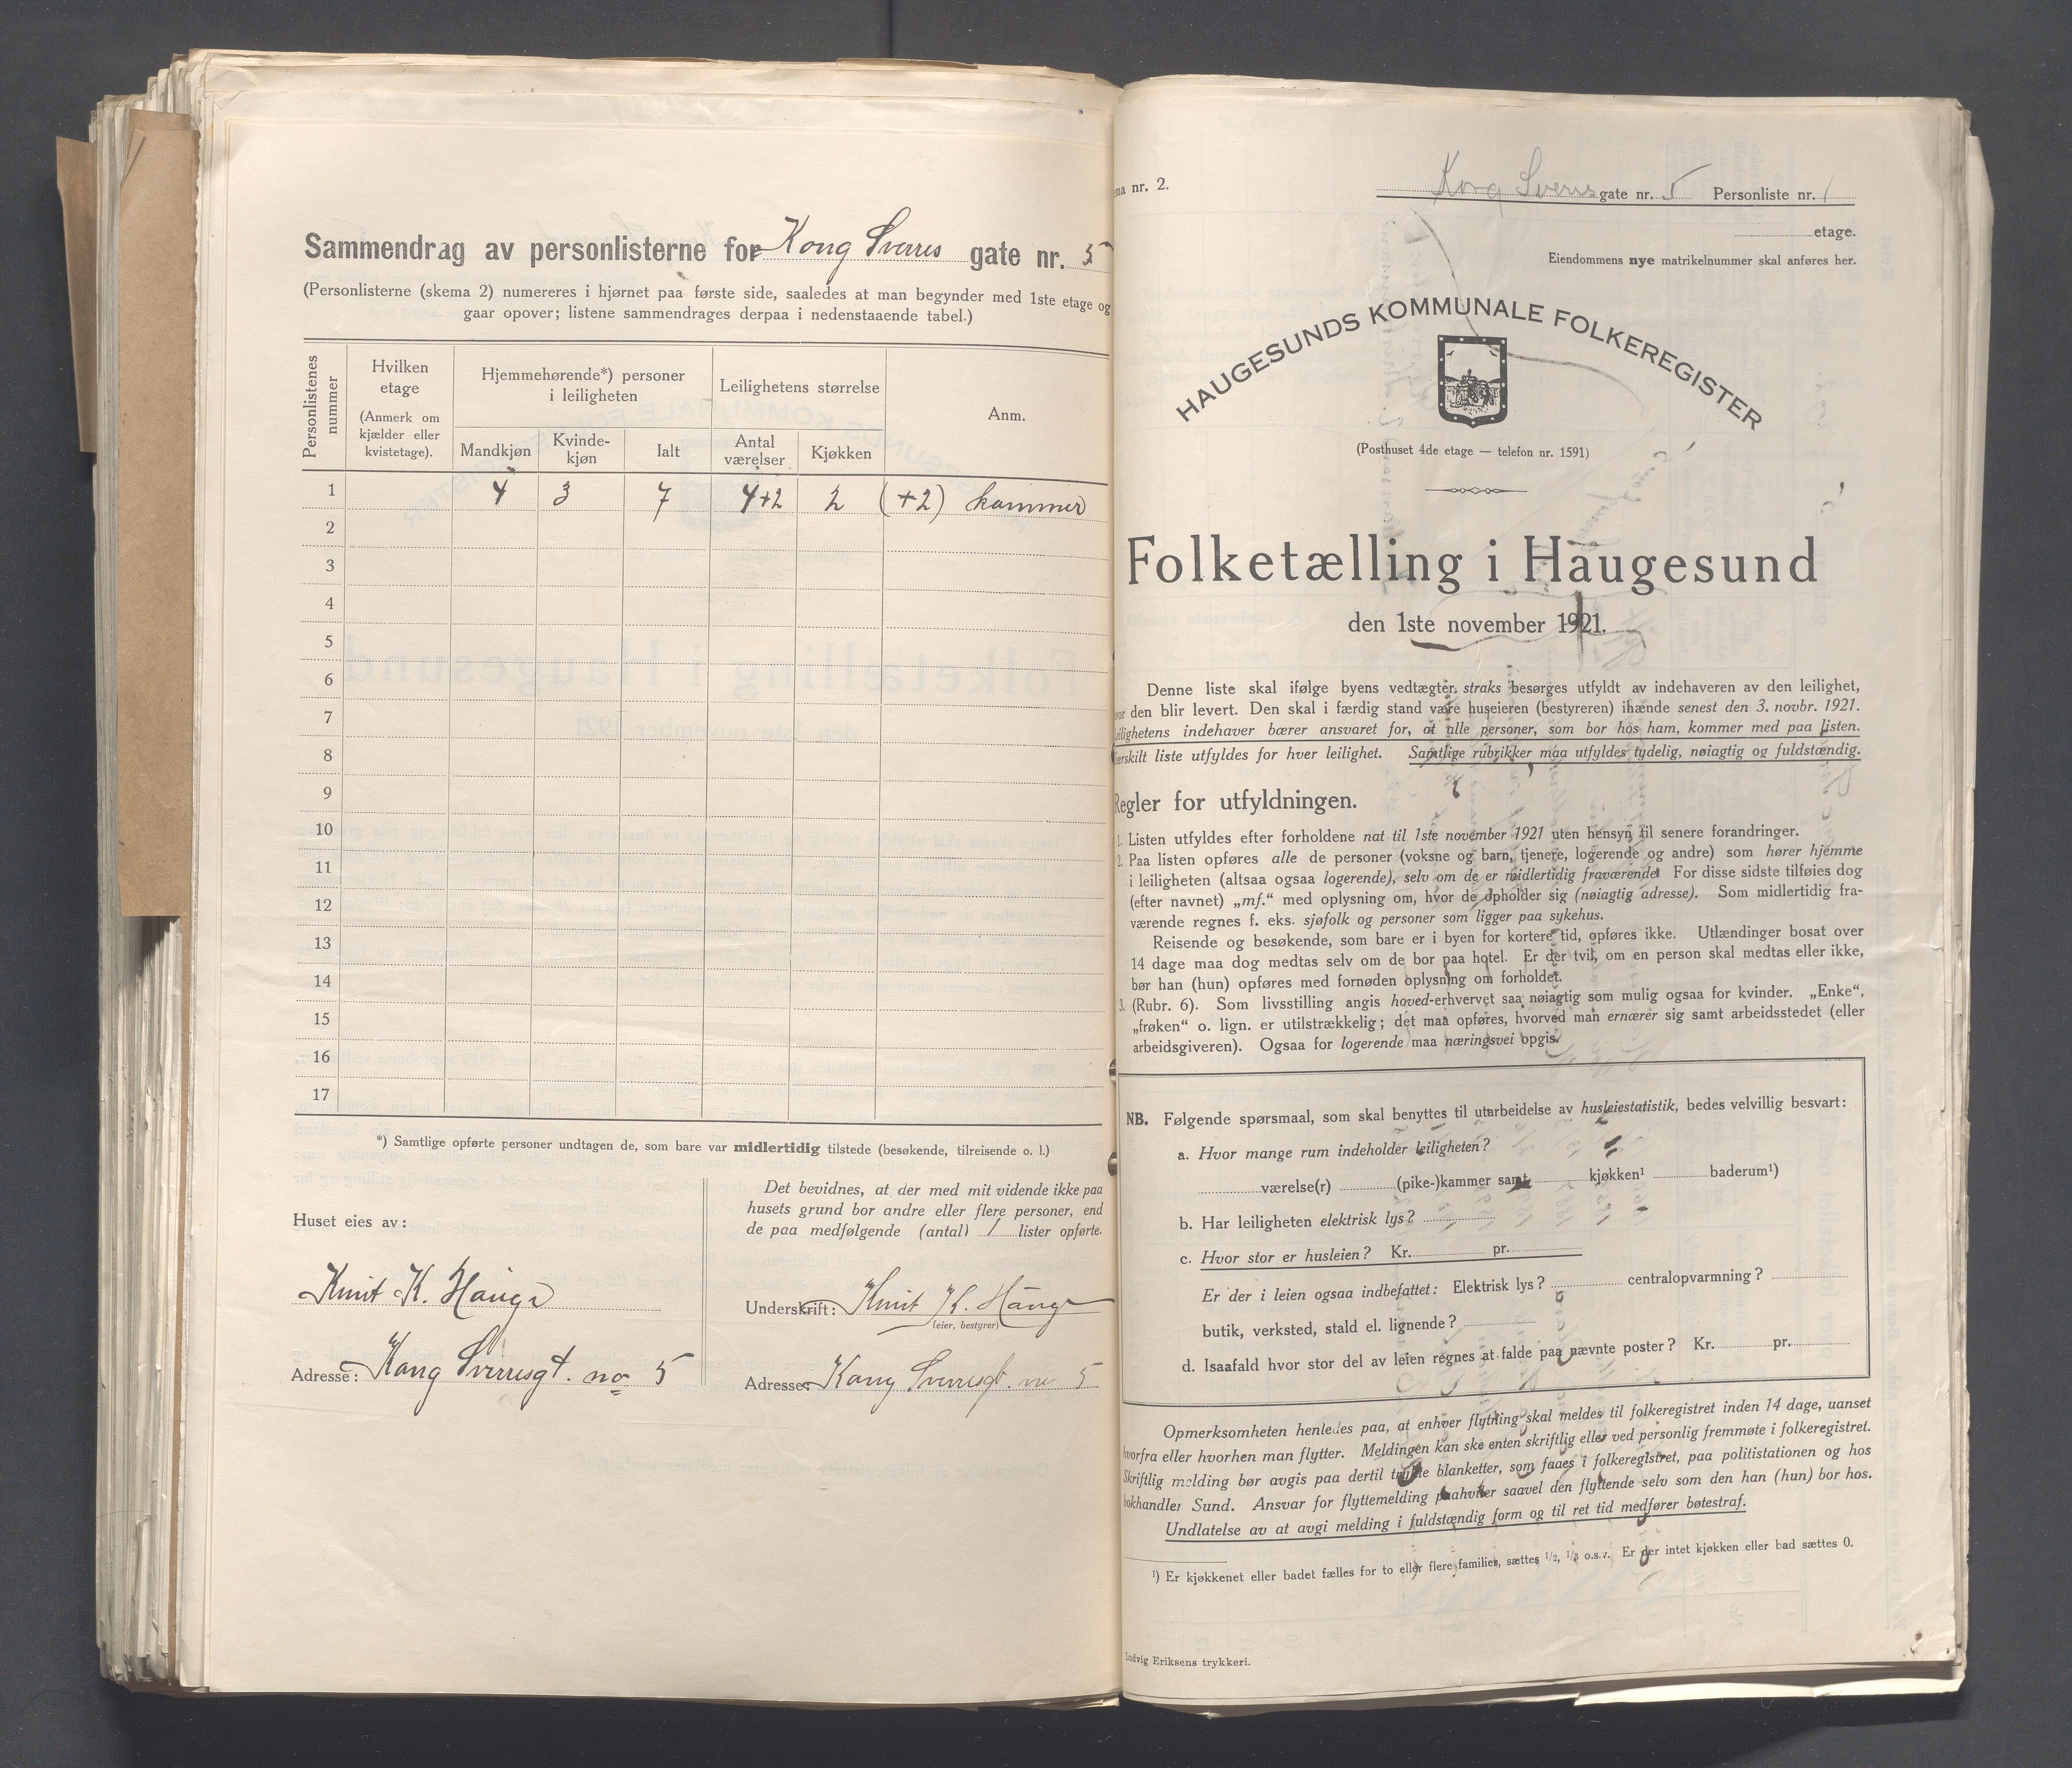 Sammendrag av personlisterne for Kong Sverres gate nr. 5
(Personlisterne (skema 2) numereres i hjørnet paa første side, saaledes at man begynder med 1ste etage og
gaar opover; listene sammendrages derpaa i nedenstaaende tabel.)
Personlistenes nummer
Hvilken etage (Anmerk om kjælder eller kvistetage).
Hjemmehørende*) personer i leiligheten
Leilighetens størrelse
Anm.
Mandkjøn Kvindekjøn Ialt Antal værelser Kjøkken
1 4 3 7 4+2 2 (+2) kammer
2
3
4
5
6
7
8
9
10
11
12
13
14
15
16
17
*) Samtlige opførte personer undtagen de, som bare var midlertidig tilstede (besøkende, tilreisende o. l.)
Huset eies av:
Knut K. Hauge
Adresse: Kong Sverresgt. no 5
Det bevidnes, at der med mit vidende ikke paa
husets grund bor andre eller flere personer, end
de paa medfølgende (antal) 1 lister opførte.
Underskrift: Knut K. Hauge
(eier, bestyrer)
Adresse: Kong Sverresgt. no 5
ma nr. 2.
Kong Sverres gate nr. 5 Personliste nr. 1
etage.
Eiendommens nye matrikelnummer skal anføres her.
HAUGESUNDS KOMMUNALE FOLKEREGISTER
(Posthuset 4de etage — telefon nr. 1591)
Folketælling i Haugesund
den 1ste november 1921.
Denne liste skal ifølge byens vedtægter straks besørges utfyldt av indehaveren av den leilighet,
vor den blir levert. Den skal i færdig stand være huseieren (bestyreren) ihænde senest den 3. novbr. 1921.
eilighetens indehaver bærer ansvaret for, at alle personer, som bor hos ham, kommer med paa listen.
ærskilt liste utfyldes for hver leilighet. Samtlige rubrikker maa utfyldes tydelig, nøiagtig og fuldstændig.
Regler for utfyldningen.
1. Listen utfyldes efter forholdene nat til 1ste november 1921 uten hensyn til senere forandringer.
2. Paa listen opføres alle de personer (voksne og barn, tjenere, logerende og andre) som hører hjemme
i leiligheten (altsaa ogsaa logerende), selv om de er midlertidig fraværende. For disse sidste tilføies dog
(efter navnet) „mf.“ med oplysning om, hvor de opholder sig (nøiagtig adresse). Som midlertidig fra-
værende regnes f. eks. sjøfolk og personer som ligger paa sykehus.
Reisende og besøkende, som bare er i byen for kortere tid, opføres ikke. Utlændinger bosat over
14 dage maa dog medtas selv om de bor paa hotel. Er der tvil, om en person skal medtas eller ikke,
bør han (hun) opføres med fornøden oplysning om forholdet.
3. (Rubr. 6). Som livsstilling angis hoved-erhvervet saa nøiagtig som mulig ogsaa for kvinder. „Enke“,
„frøken“ o. lign. er utilstrækkelig; det maa opføres, hvorved man ernærer sig samt arbeidsstedet (eller
arbeidsgiveren). Ogsaa for logerende maa næringsvei opgis.
NB. Følgende spørsmaal, som skal benyttes til utarbeidelse av husleiestatistik, bedes velvillig besvart:
a. Hvor mange rum indeholder leiligheten?
værelse(r) (pike-)kammer samt kjøkken¹ baderum¹)
b. Har leiligheten elektrisk lys?
c. Hvor stor er husleien? Kr. pr.
Er der i leien ogsaa indbefattet: Elektrisk lys? centralopvarmning?
butik, verksted, stald el. lignende?
d. Isaafald hvor stor del av leien regnes at falde paa nævnte poster? Kr. pr.
Opmerksomheten henledes paa, at enhver flytning skal meldes til folkeregistret inden 14 dage, uanset
hvorfra eller hvorhen man flytter. Meldingen kan ske enten skriftlig eller ved personlig fremmøte i folkeregistret.
Skriftlig melding bør avgis paa dertil trykte blanketter, som faaes i folkeregistret, paa politistationen og hos
bokhandler Sund. Ansvar for flyttemelding paahviler saavel den flyttende selv som den han (hun) bor hos.
Undlatelse av at avgi melding i fuldstændig form og til ret tid medfører bøtestraf.
¹) Er kjøkkenet eller badet fælles for to eller flere familier, sættes 1/2, 1/3 o.s.v. Er der intet kjøkken eller bad sættes 0.
Ludvig Eriksens trykkeri.